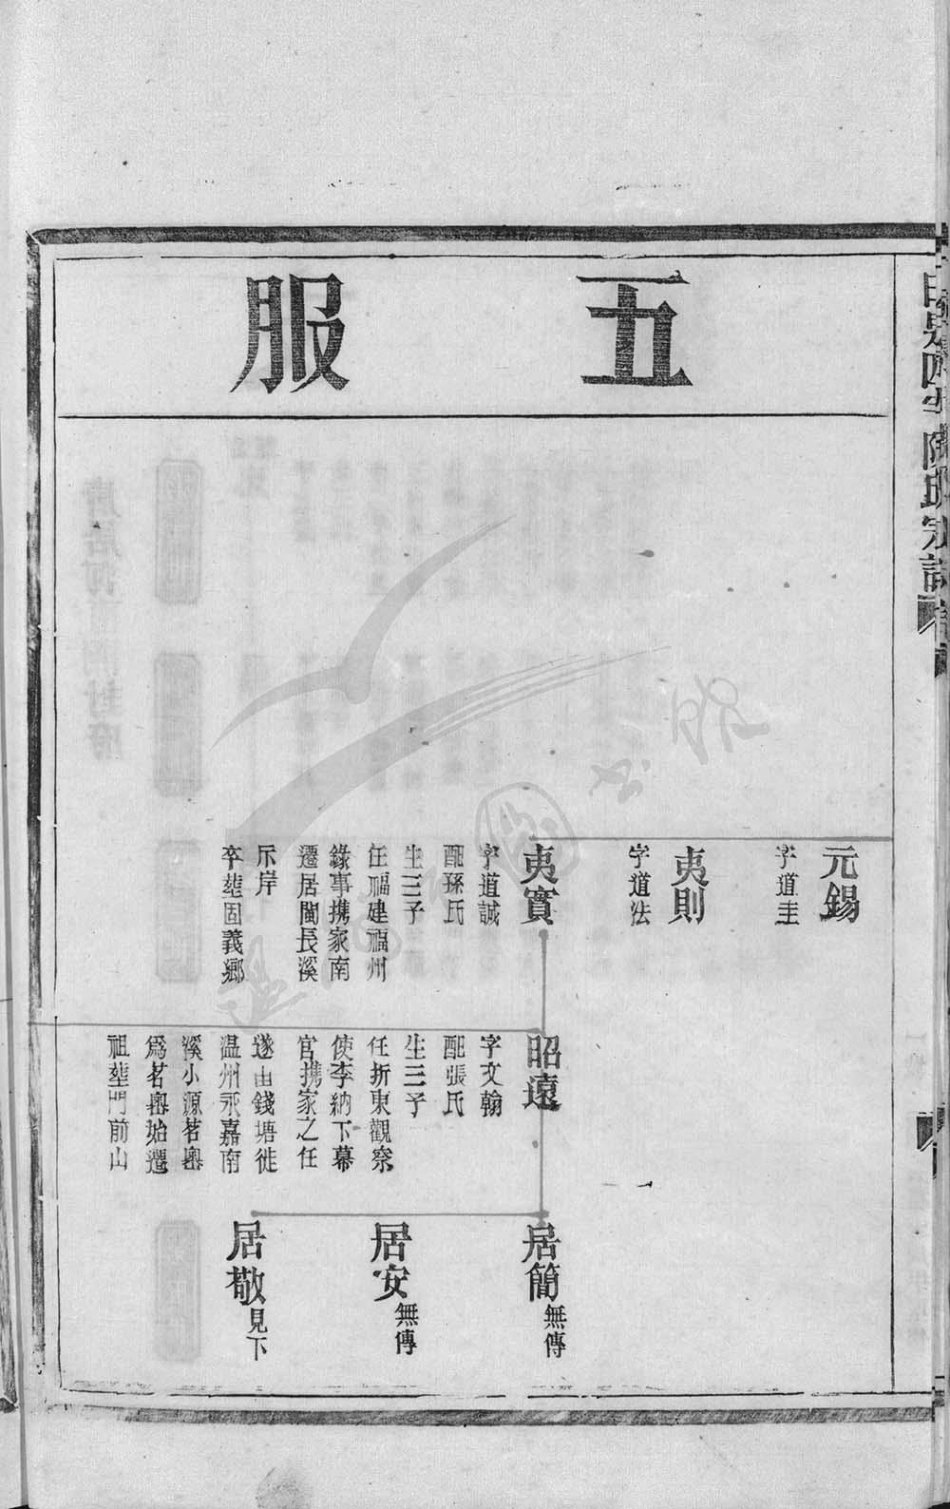 五服
元錫
字道圭
夷則
字道法
夷實
字道誠
配孫氏
生三子
任福建福州
錄事携家南
遷居閩長溪
斥岸
卒塟固義鄉
昭遠
字文翰
配張氏
生三子
任折東觀察
使李納下幕
官携家之任
遂由錢塘徙
温州永嘉南
溪小源茗岙
為茗岙始遷
祖塟門前山
居簡無傳
居安無傳
居敬見下
陳氏宗譜